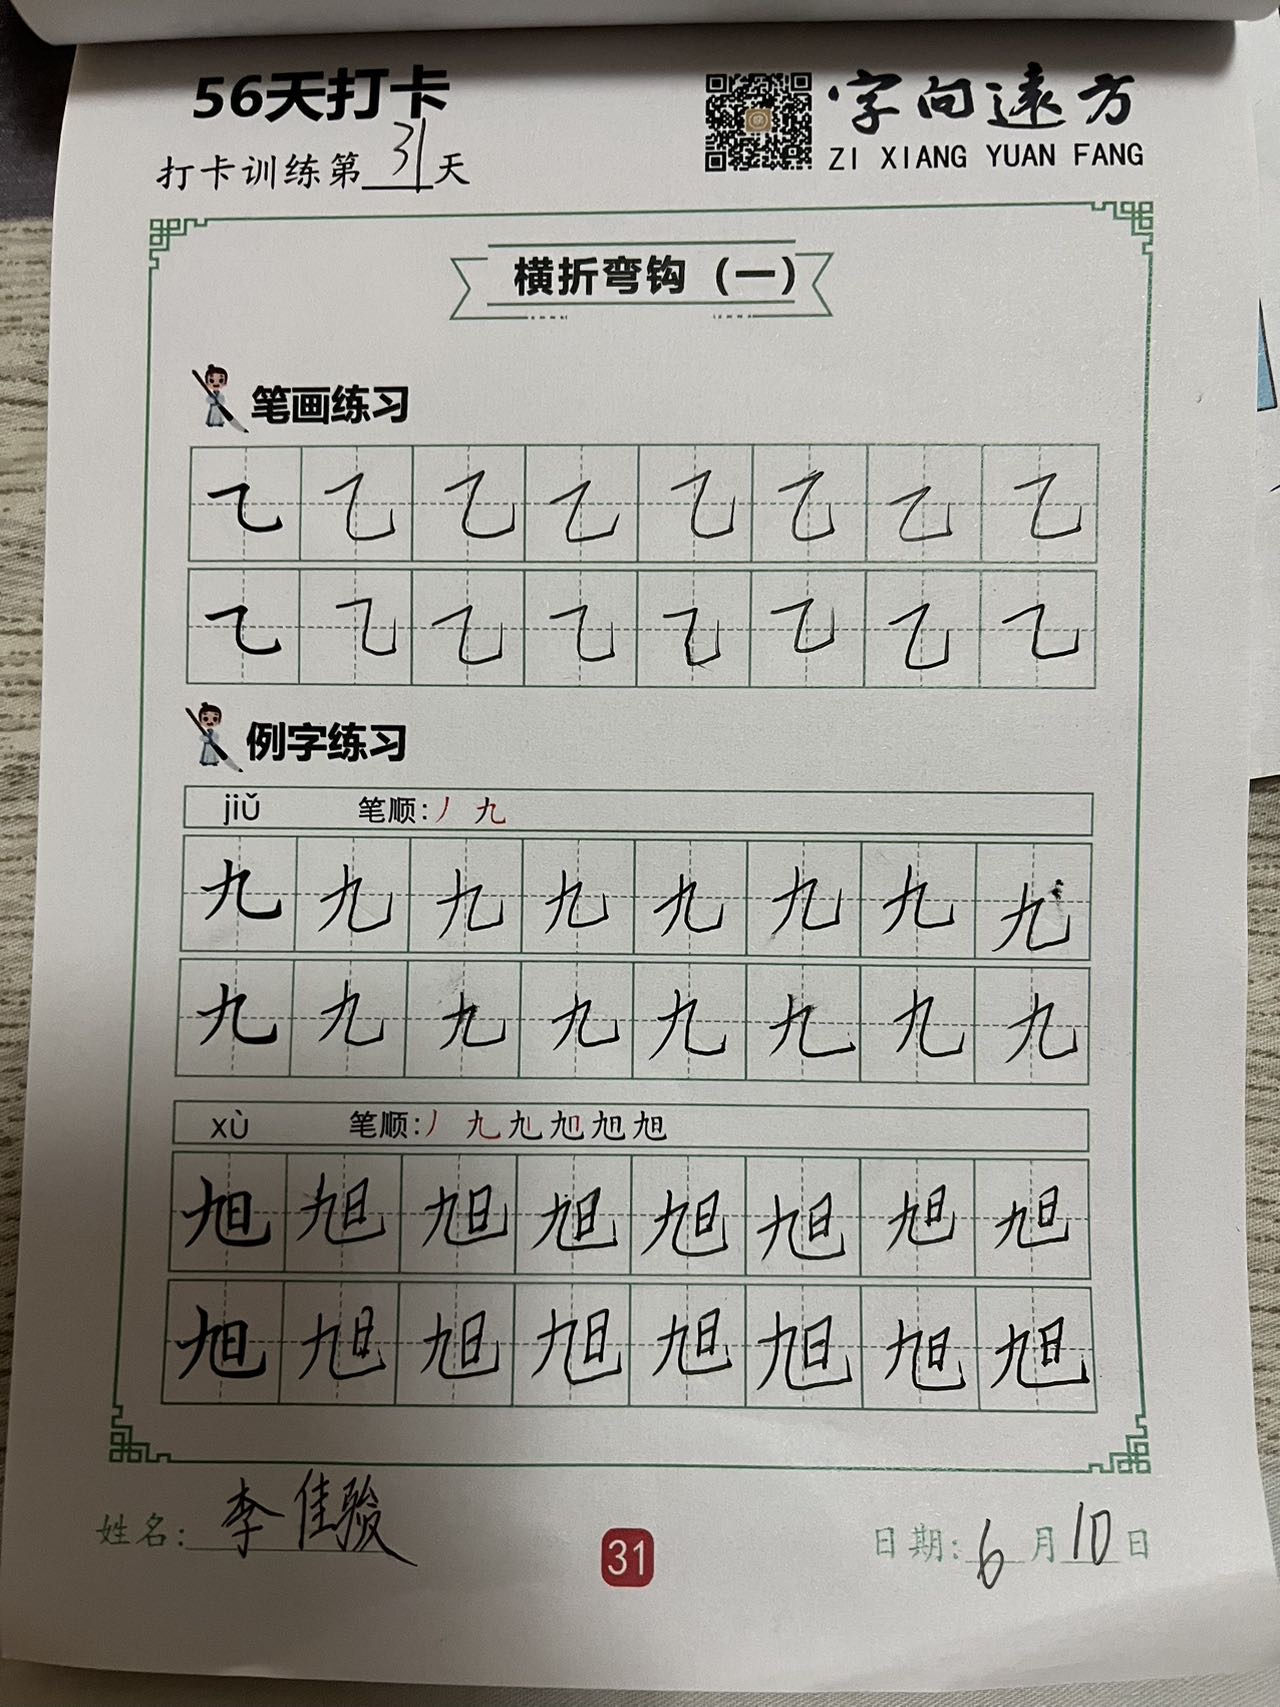 56天打卡
字向远方
ZI XIANG YUAN FANG
打卡训练第31天
横折弯钩（一）
笔画练习
㇈ ㇈ ㇈ ㇈ ㇈ ㇈ ㇈ ㇈
㇈ ㇈ ㇈ ㇈ ㇈ ㇈ ㇈ ㇈
例字练习
jiǔ 笔顺:丿 九
九 九 九 九 九 九 九 九
九 九 九 九 九 九 九 九
xù 笔顺:丿 九 旭 旭 旭 旭
旭 旭 旭 旭 旭 旭 旭 旭
旭 旭 旭 旭 旭 旭 旭 旭
姓名:李佳骏
31
日期:6月10日